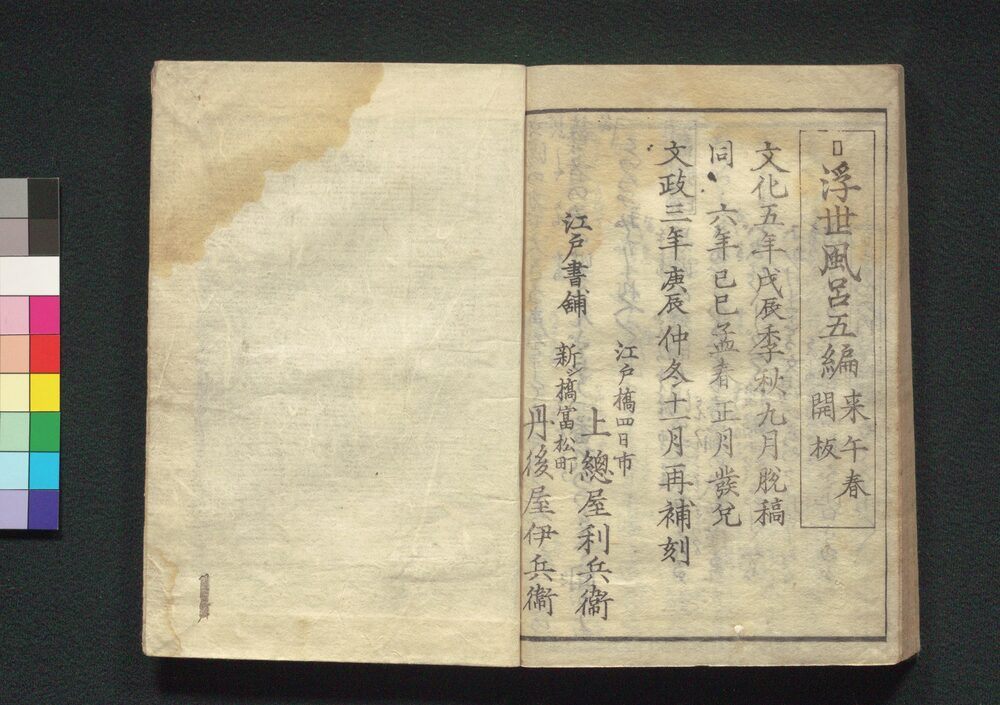 浮世風呂五編 来午春開板
文化五年戊辰季秋九月脱稿
同 六年己巳孟春正月發兌
文政三年庚辰仲冬十一月再補刻
江戸書舗
江戸橋四日市
上總屋利兵衞
新シ橋富松町
丹後屋伊兵衞